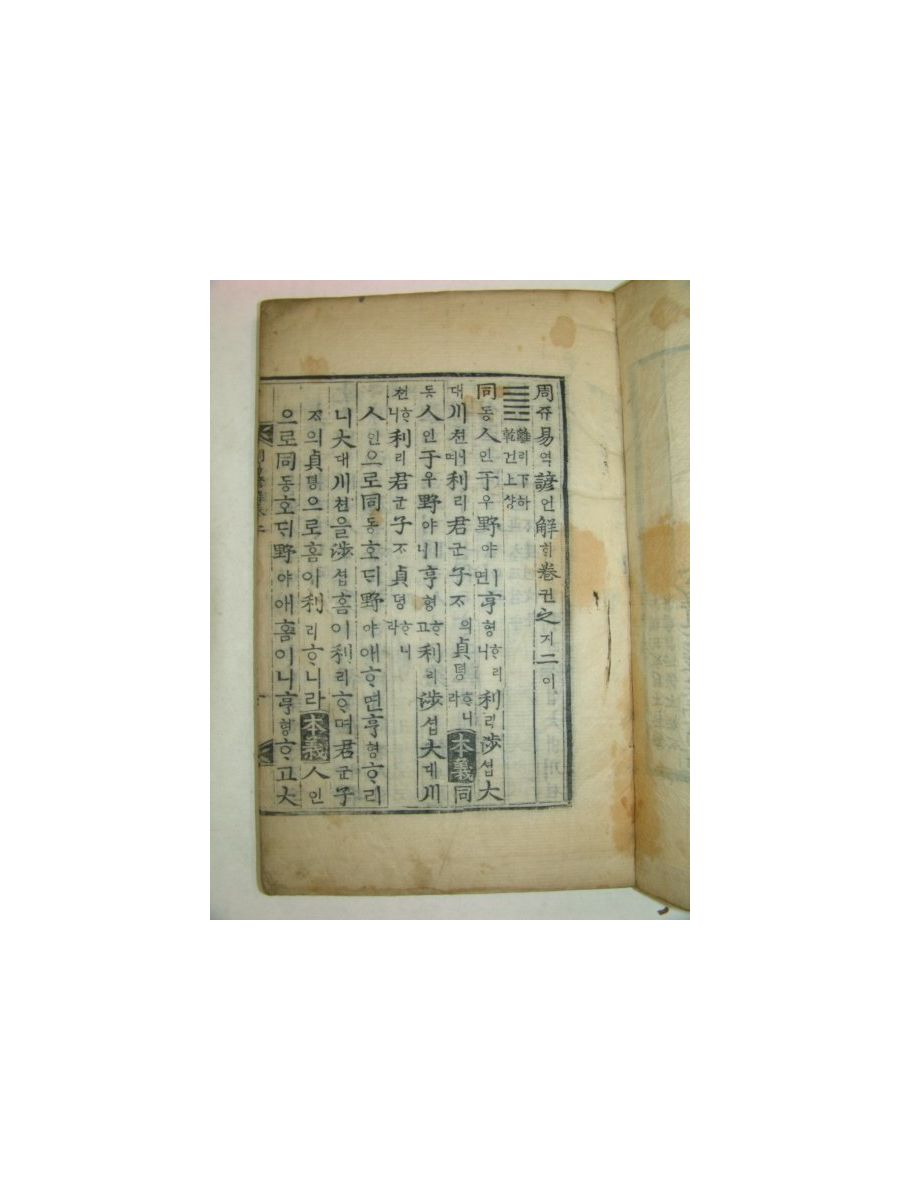 周쥬易역諺언解ᄒᆡ卷권之지二이
離리下하乾건上샹
同동人인于우野야면亨형ᄒᆞ리니利리涉셥大
대川쳔이며利리君군子ᄌᆞ의貞뎡ᄒᆞ니라本義同
동人인于우野야니亨형ᄒᆞ고利리涉셥大대川
쳔ᄒᆞ니利리君군子ᄌᆞ貞뎡ᄒᆞ니라
人인으로同동호ᄃᆡ野야애ᄒᆞ면亨형ᄒᆞ리
니大대川쳔을涉셥홈이利리ᄒᆞ며君군子
ᄌᆞ의貞뎡으로홈이利리ᄒᆞ니라本義人인
으로同동호ᄃᆡ野야애홈이니亨형ᄒᆞ고大